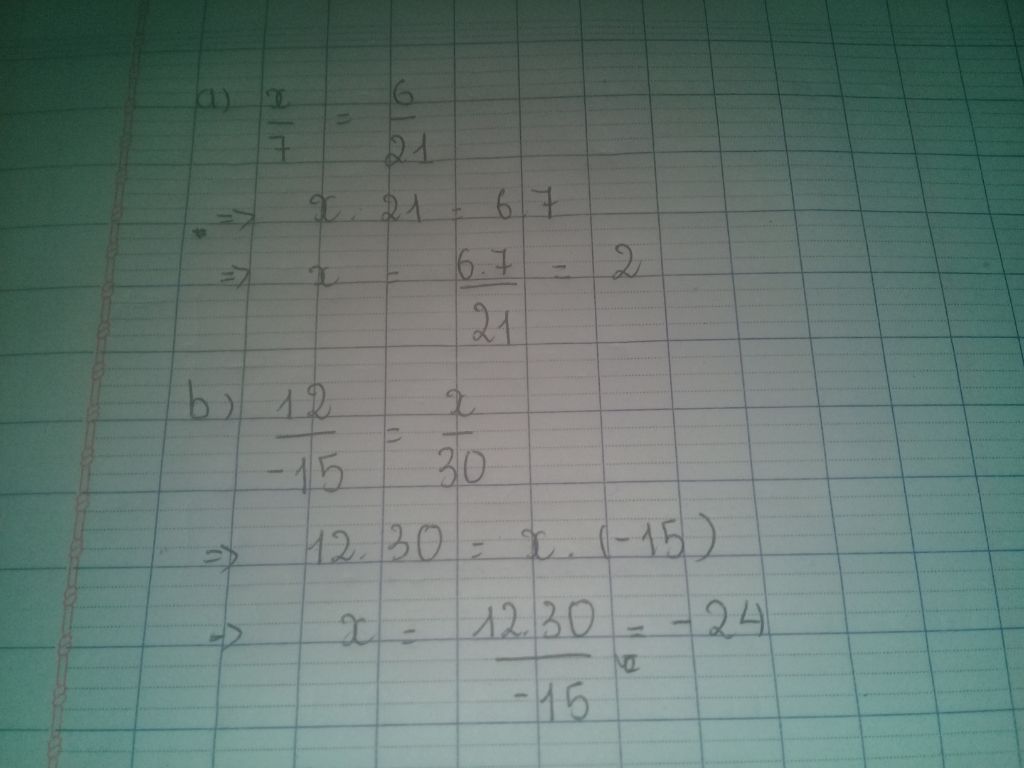 a) x/7 = 6/21
=> x. 21 = 6.7
=> x = 6.7/21 = 2
b) 12/-15 = x/30
=> 12.30 = x.(-15)
=> x = 12.30/-15 = -24